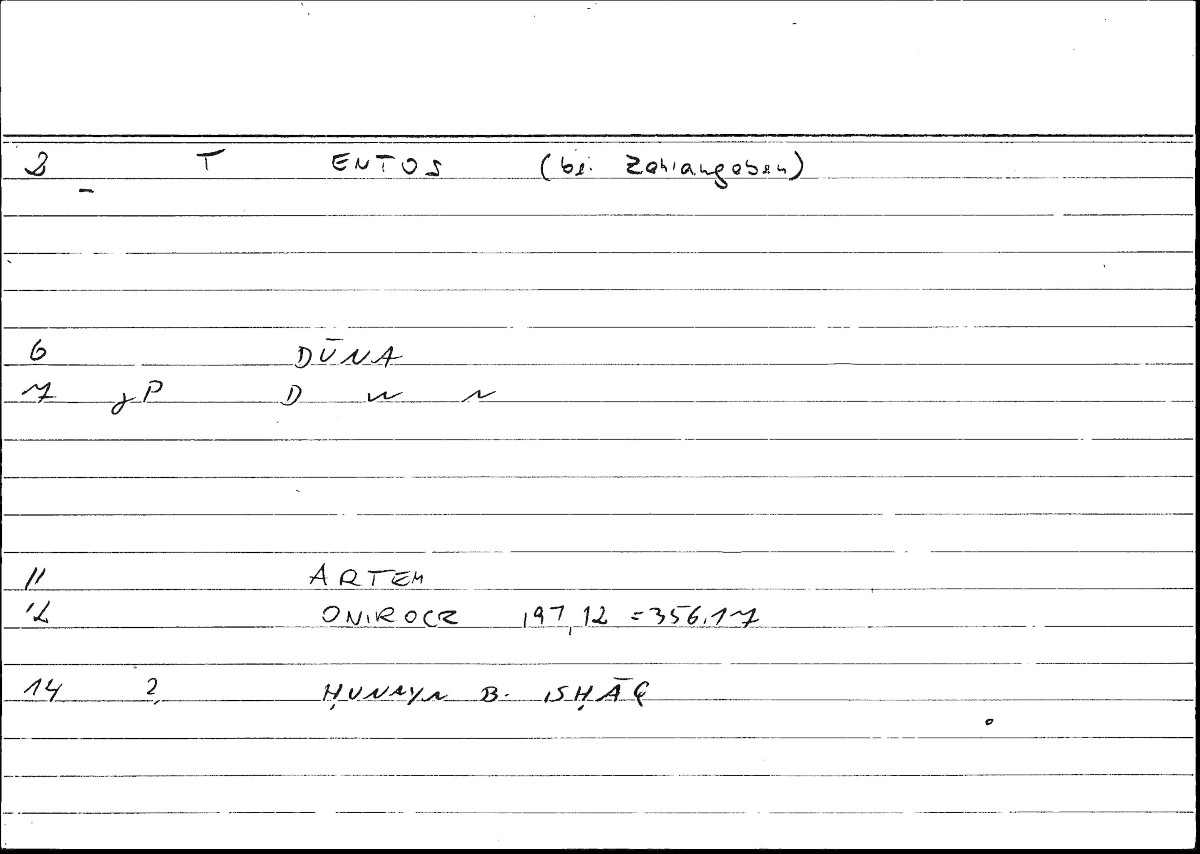 2 T ENTOS (bei Zahlangaben)
6 DŪNA
7 gP D w n
11 ARTEM
12 ONIROCR 197,12 = 356.17
14 2, ḤUNAYN B. ISḤĀQ